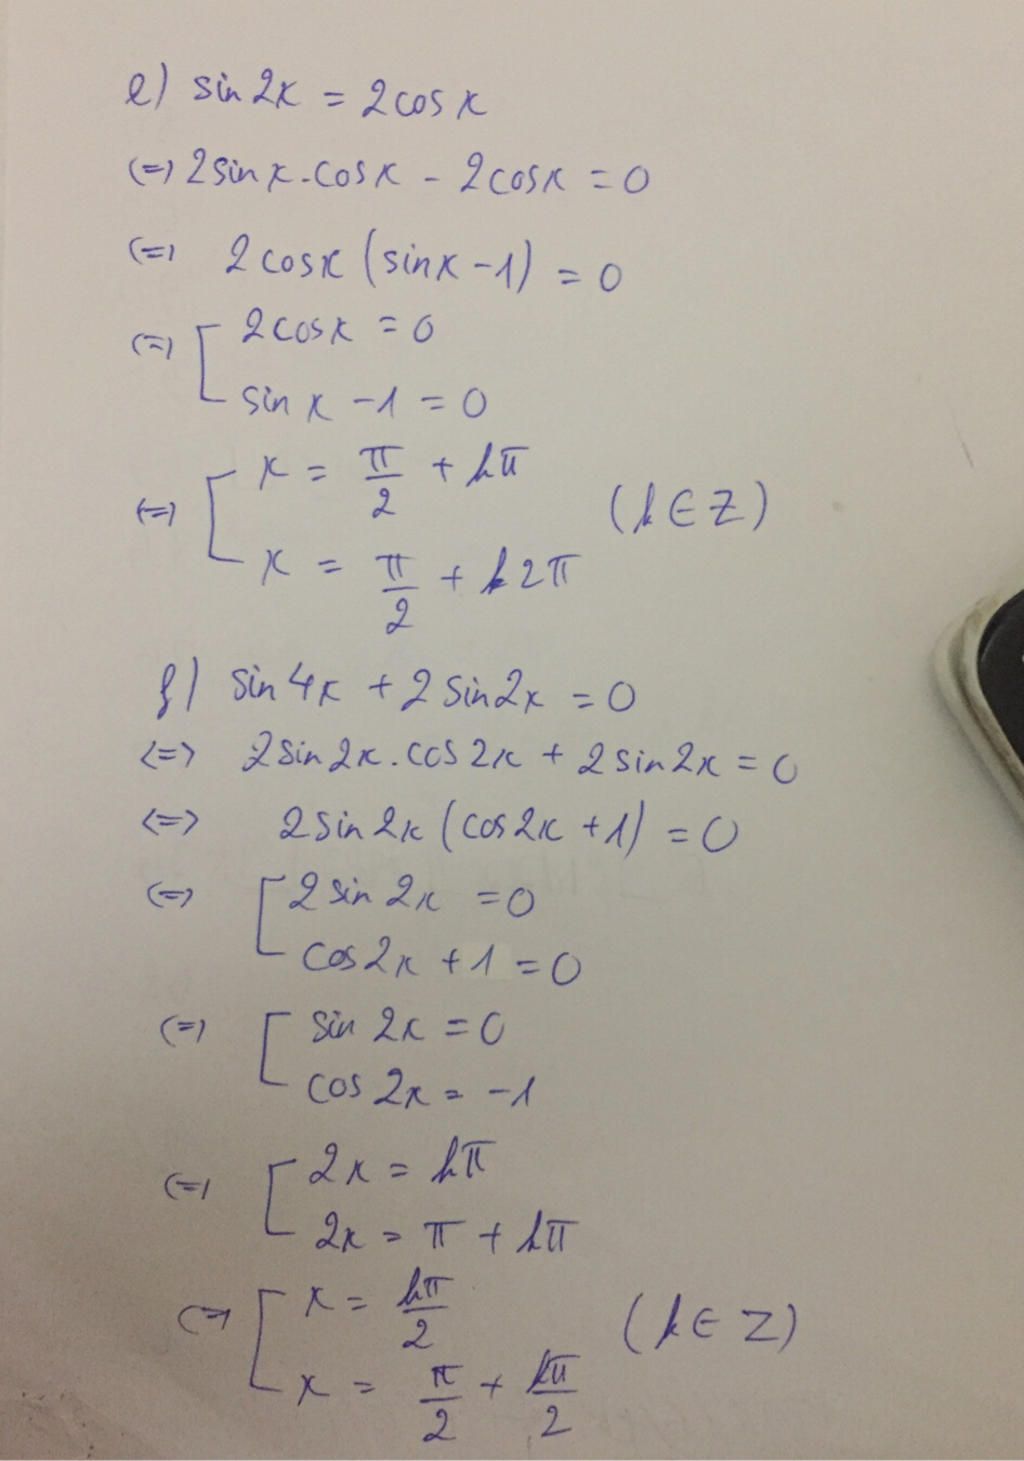 e) sin 2x = 2cos x
(=) 2sin x.cos x - 2cos x = 0
(=) 2cos x (sin x - 1) = 0
(=) [ 2cos x = 0
sin x - 1 = 0
(=) [ x = π/2 + kπ
x = π/2 + k2π (k ∈ Z)
f) sin 4x + 2 sin 2x = 0
<=> 2sin 2x.cos 2x + 2 sin 2x = 0
<=> 2sin 2x (cos 2x + 1) = 0
(=) [ 2 sin 2x = 0
cos 2x + 1 = 0
(=) [ sin 2x = 0
cos 2x = -1
(=) [ 2x = kπ
2x = π + kπ
(=) [ x = kπ/2
x = π/2 + kπ/2 (k ∈ Z)